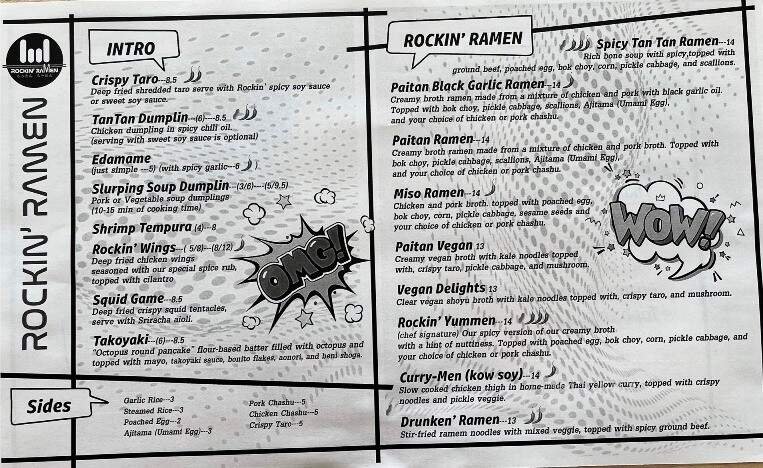 ROCKIN' RAMEN
ROCKIN' RAMEN
INTRO
Crispy Taro---8.5
Deep fried shredded taro serve with Rockin' spicy soy sauce
or sweet soy sauce.
TanTan Dumplin---(6)---8.5
Chicken dumpling in spicy chili oil.
(serving with sweet soy sauce is optional)
Edamame
(just simple ---5) (with spicy garlic---6 )
Slurping Soup Dumplin---(3/6)----(5/9.5)
Pork or Vegetable soup dumplings
(10-15 min of cooking time)
Shrimp Tempura (4)---8
Rockin' Wings---( 5/8)--(8/12)
Deep fried chicken wings
seasoned with our special spice rub,
topped with cilantro
Squid Game---8.5
Deep fried crispy squid tentacles,
serve with Sriracha aioli.
Takoyaki---(6)---8.5
"Octopus round pancake" flour-based batter filled with octopus and
topped with mayo, takoyaki sauce, bonito flakes, aonori, and beni shoga.
OMG!
Sides
Garlic Rice---3
Steamed Rice---3
Poached Egg---2
Ajitama (Umami Egg)---3
Pork Chashu---5
Chicken Chashu---5
Crispy Taro---5
ROCKIN' RAMEN
Spicy Tan Tan Ramen---14
Rich bone soup with spicy,topped with
ground beef, poached egg, bok choy, corn, pickle cabbage, and scallions.
Paitan Black Garlic Ramen---14
Creamy broth ramen made from a mixture of chicken and pork with black garlic oil.
Topped with bok choy, pickle cabbage, scallions, Ajitama (Umami Egg),
and your choice of chicken or pork chashu.
Paitan Ramen---14
Creamy broth ramen made from a mixture of chicken and pork broth. Topped with
bok choy, pickle cabbage, scallions, Ajitama (Umami Egg),
and your choice of chicken or pork chashu.
Miso Ramen---14
Chicken and pork broth. topped with poached egg,
bok choy, corn, pickle cabbage, sesame seeds and
your choice of chicken or pork chashu.
WOW!!
Paitan Vegan 13
Creamy vegan broth with kale noodles topped
with, crispy taro, pickle cabbage, and mushroom.
Vegan Delights 13
Clear vegan shoyu broth with kale noodles topped with, crispy taro, and mushroom.
Rockin' Yummen---14
(chef signature) Our spicy version of our creamy broth
with a hint of nuttiness. Topped with poached egg, bok choy, corn, pickle cabbage, and
your choice of chicken or pork chashu.
Curry-Men (kow soy)---14
Slow cooked chicken thigh in home-made Thai yellow curry, topped with crispy
noodles and pickle veggie.
Drunken' Ramen---13
Stir-fried ramem noodles with mixed veggie, topped with spicy ground beef.